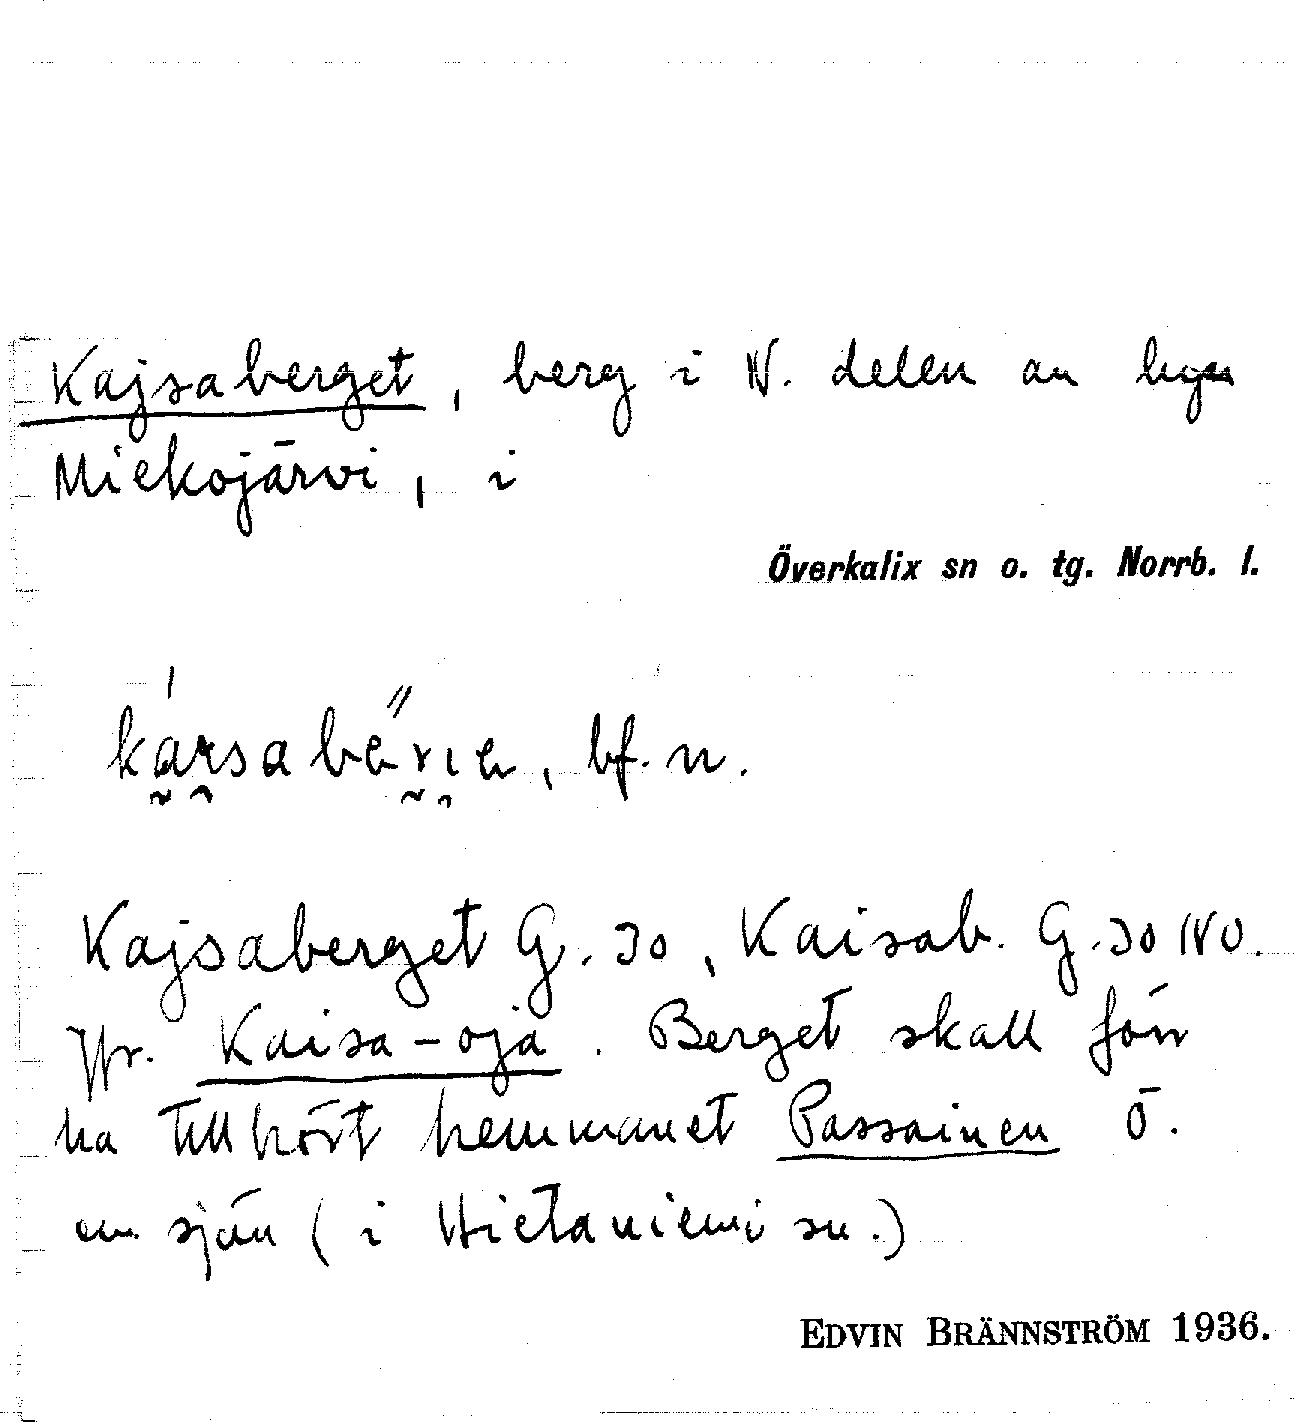 Kajsaberget, berg i N. delen av byn
Miekojärvi, i
Överkalix sn o. tg. Norrb. l.
bf. n.
Kajsaberget G. 30, Kaisab. G. 30 NV.
Jfr. Kaisa-oja. Berget skall förr
ha tillhört hemmanet Passainen Ö.
om sjön (i Hietaniemi sn.)
EDVIN BRÄNNSTRÖM 1936.